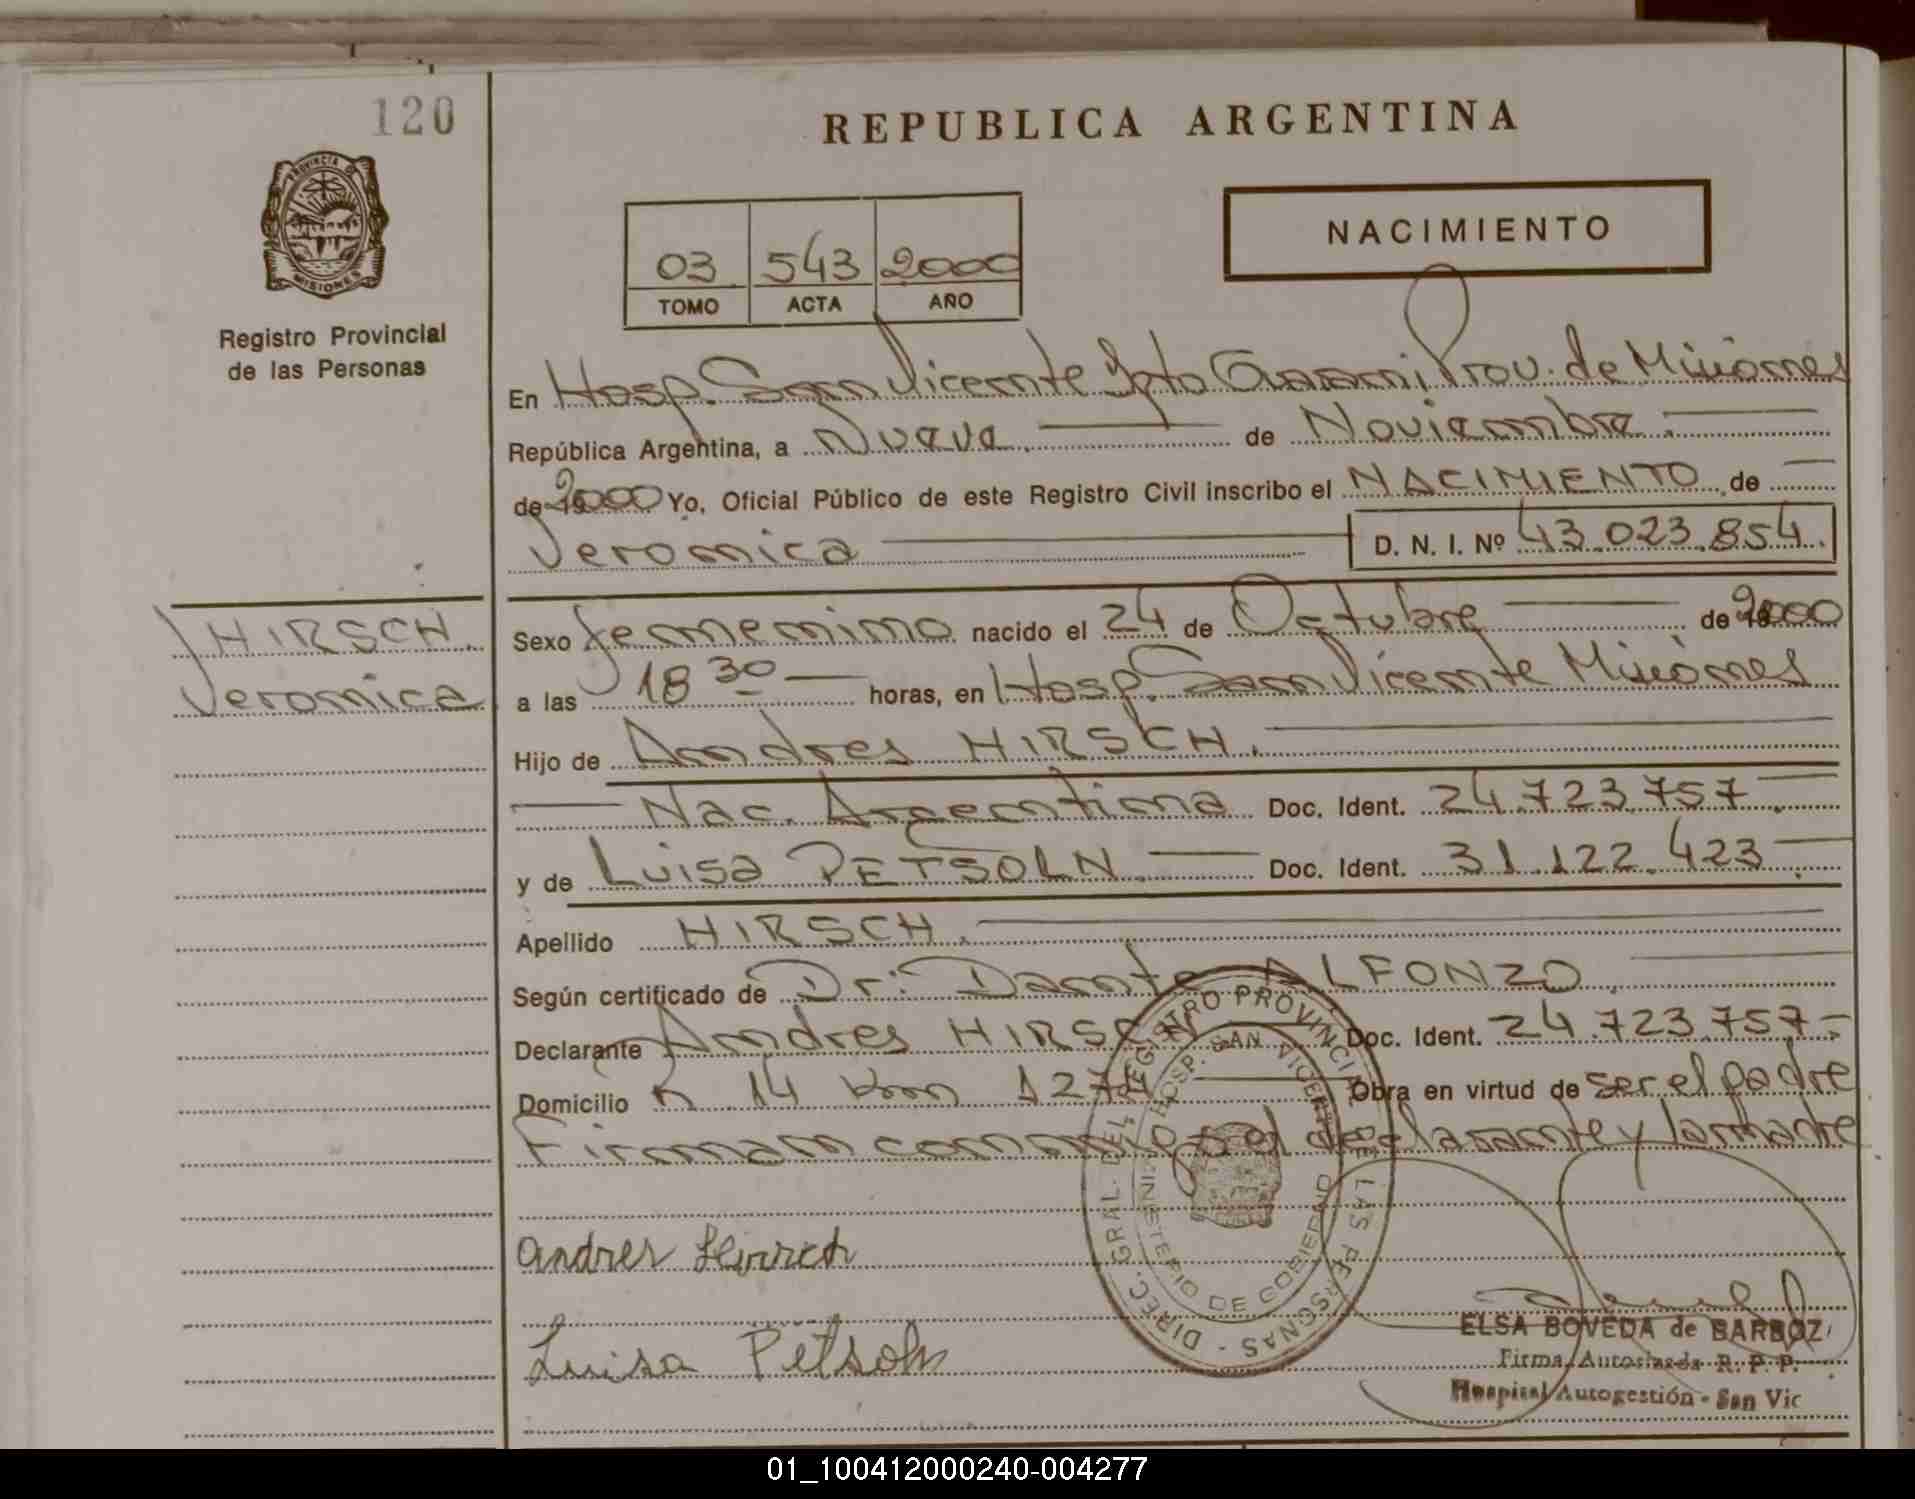 120
REPUBLICA ARGENTINA
PROVINCIA DE
MISIONES
Registro Provincial
de las Personas
NACIMIENTO
03 543 2000
TOMO ACTA AÑO
En Hosp. San Vicente Dpto Guaraní Prov. de Misiones
República Argentina, a Nueve de Noviembre
de 2000 Yo, Oficial Público de este Registro Civil inscribo el NACIMIENTO de
Veronica D. N. I. Nº 43.023.854.
HIRSCH.
Veronica
Sexo femenino nacido el 24 de Octubre de 2000
a las 18 30 horas, en Hosp. San Vicente Misiones
Hijo de Andres HIRSCH.
Nac. Argentina Doc. Ident. 24.723.757
y de Luisa PETSOLN. Doc. Ident. 31.122.423
Apellido HIRSCH.
Según certificado de Dr: Dante ALFONZO
Declarante Andres HIRSCH Doc. Ident. 24.723.757-
Domicilio R 14 km 1274 Obra en virtud de ser el padre
Firman conmigo el declarante y la madre
DIREC. GRAL. DEL REGISTRO PROVINCIAL DE LAS PERSONAS -
HOSP. SAN VICENTE
MINISTERIO DE GOBIERNO
andres
Luisa
ELSA BOVEDA de BARBOZ
Firma Autorizada R. P. P.
Hospital Autogestión - San Vic
01_100412000240-004277